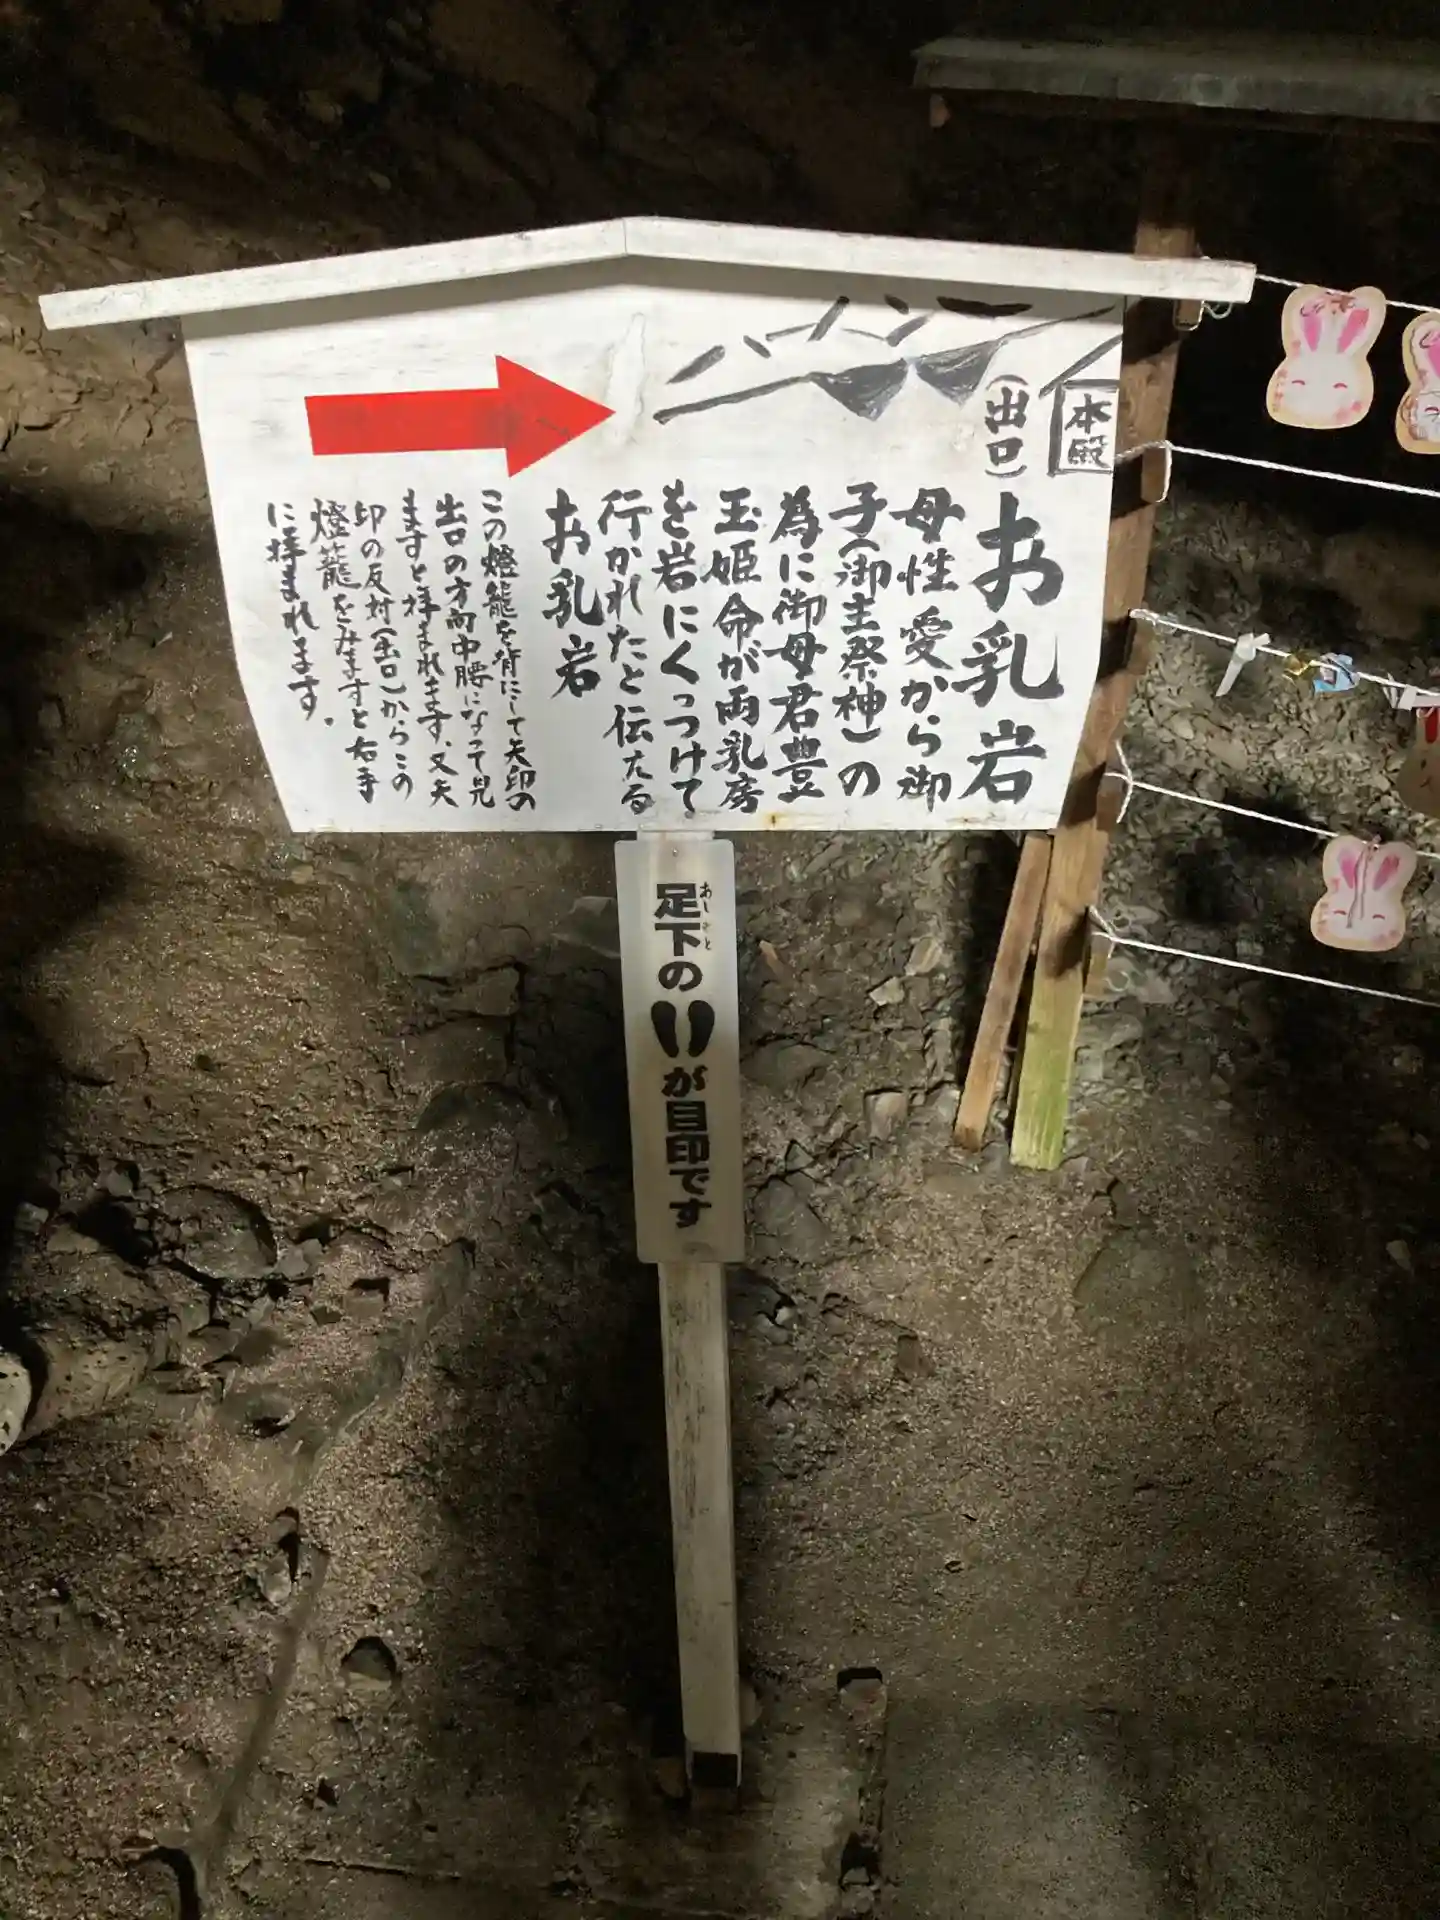 本殿
(出口)
お乳岩
母性愛から御
子(御主祭神)の
為に御母君豊
玉姫命が両乳房
を岩にくっつけて
行かれたと伝たる
お乳岩
この燈籠を背にして矢印の
出口の方向中腰になって見
ますと拝まれます、又矢
印の反対(出口)からこの
燈籠をみますと右手
に拝まれます。
足下の
あしもと
が目印です